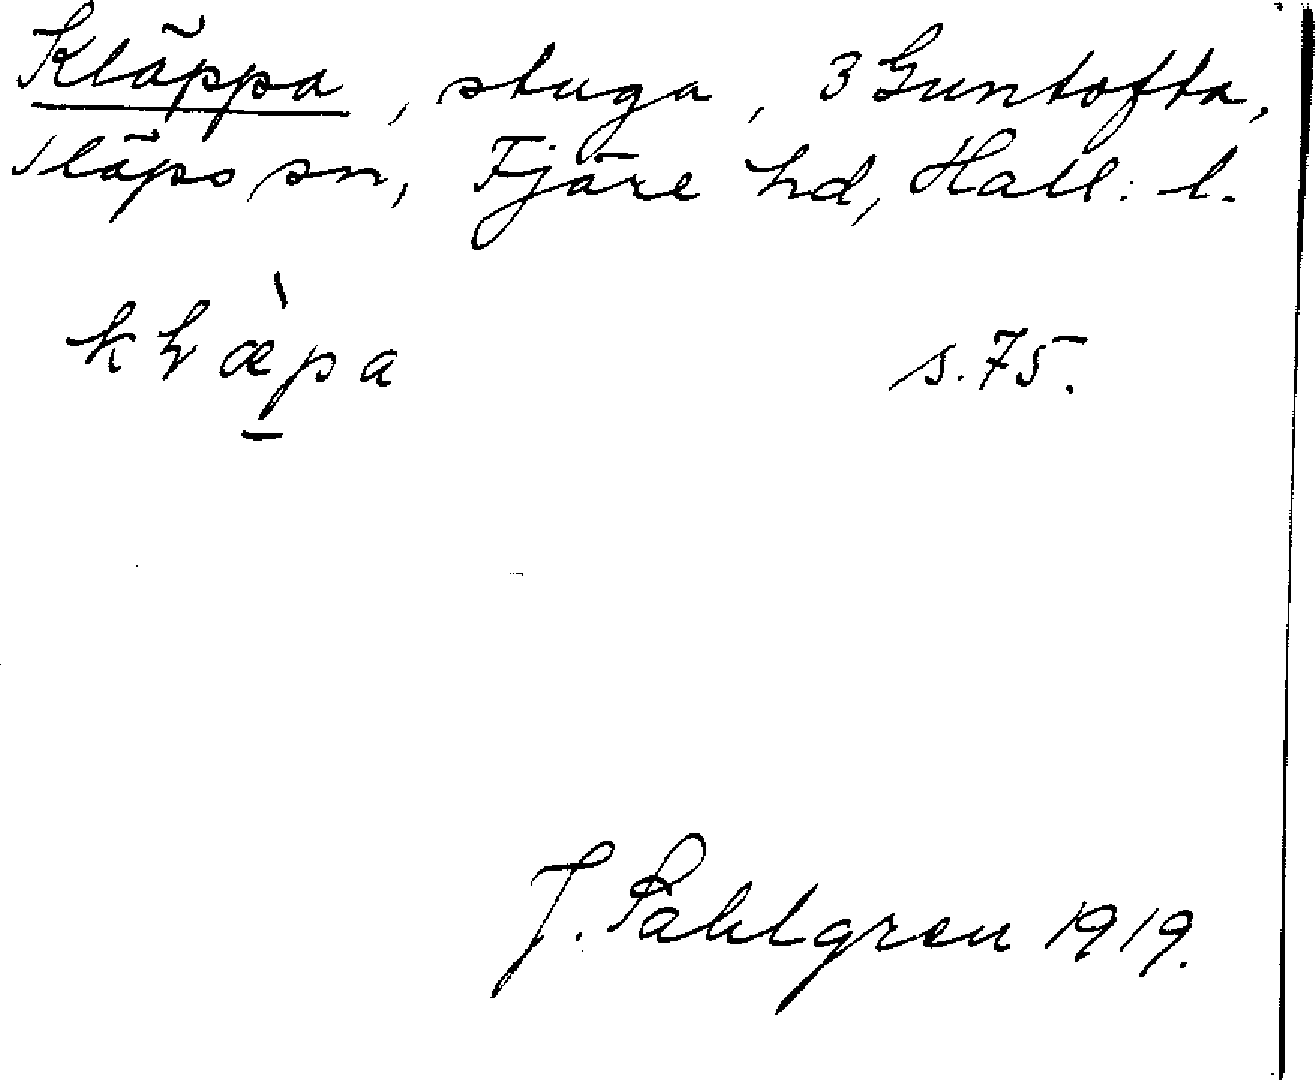 Kläppa, stuga, 3 Guntofta,
Släps sn, Fjäre hd, Hall. l.
kḷæ̀pa s. 75.
J. Sahlgren 1919.